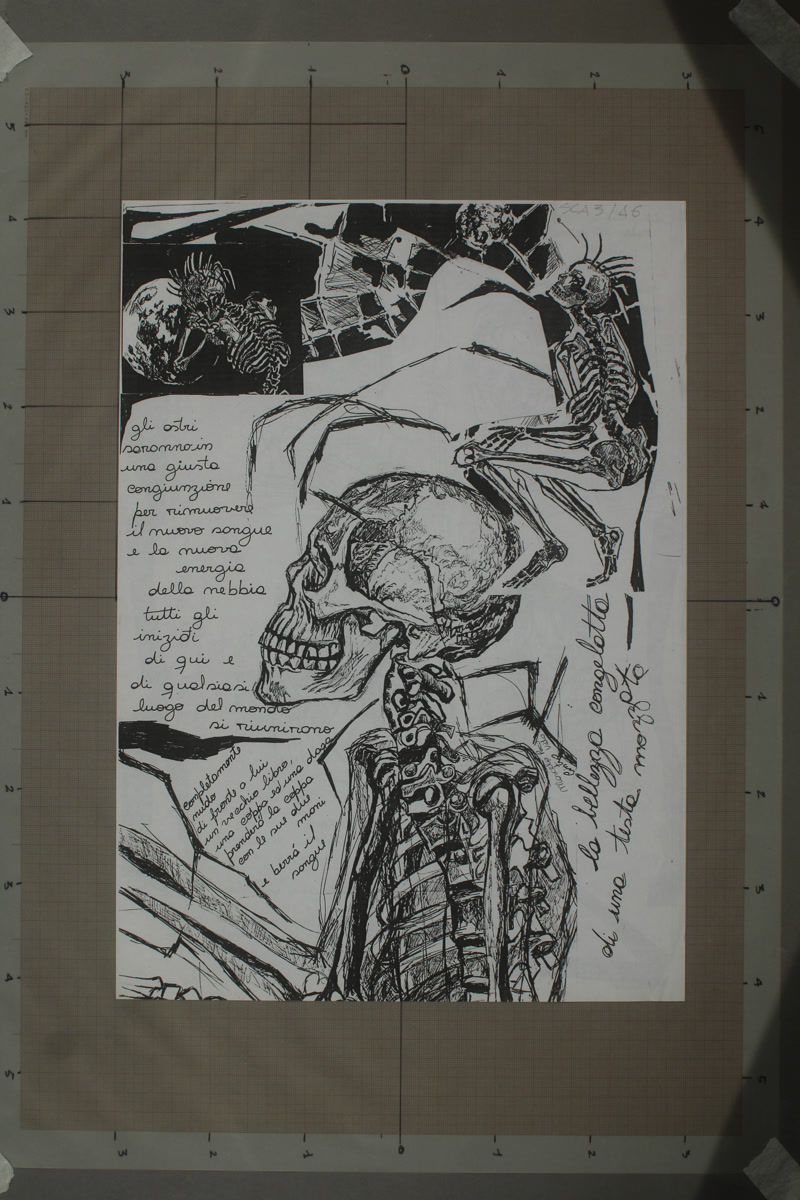 SCA3/46
gli astri
saranno in
una giusta
congiunzione
per rimuovere
il nuovo sangue
e la nuova
energia
della nebbia
tutti gli
iniziati
di qui e
di qualsiasi
luogo del mondo
si riunirano
completamente
nudo
di fronte a lui
un vecchio libro,
una coppa ed una daga
prenderà la coppa
con le sue due
mani
e berrà il
sangue
la bellezza congelata
di una testa mozzata
3 2 1 0 1 2 3
5 4 3 2 1 0 1 2 3 4 5
5 4 3 2 1 0 1 2 3 4 5
3 2 1 0 1 2 3